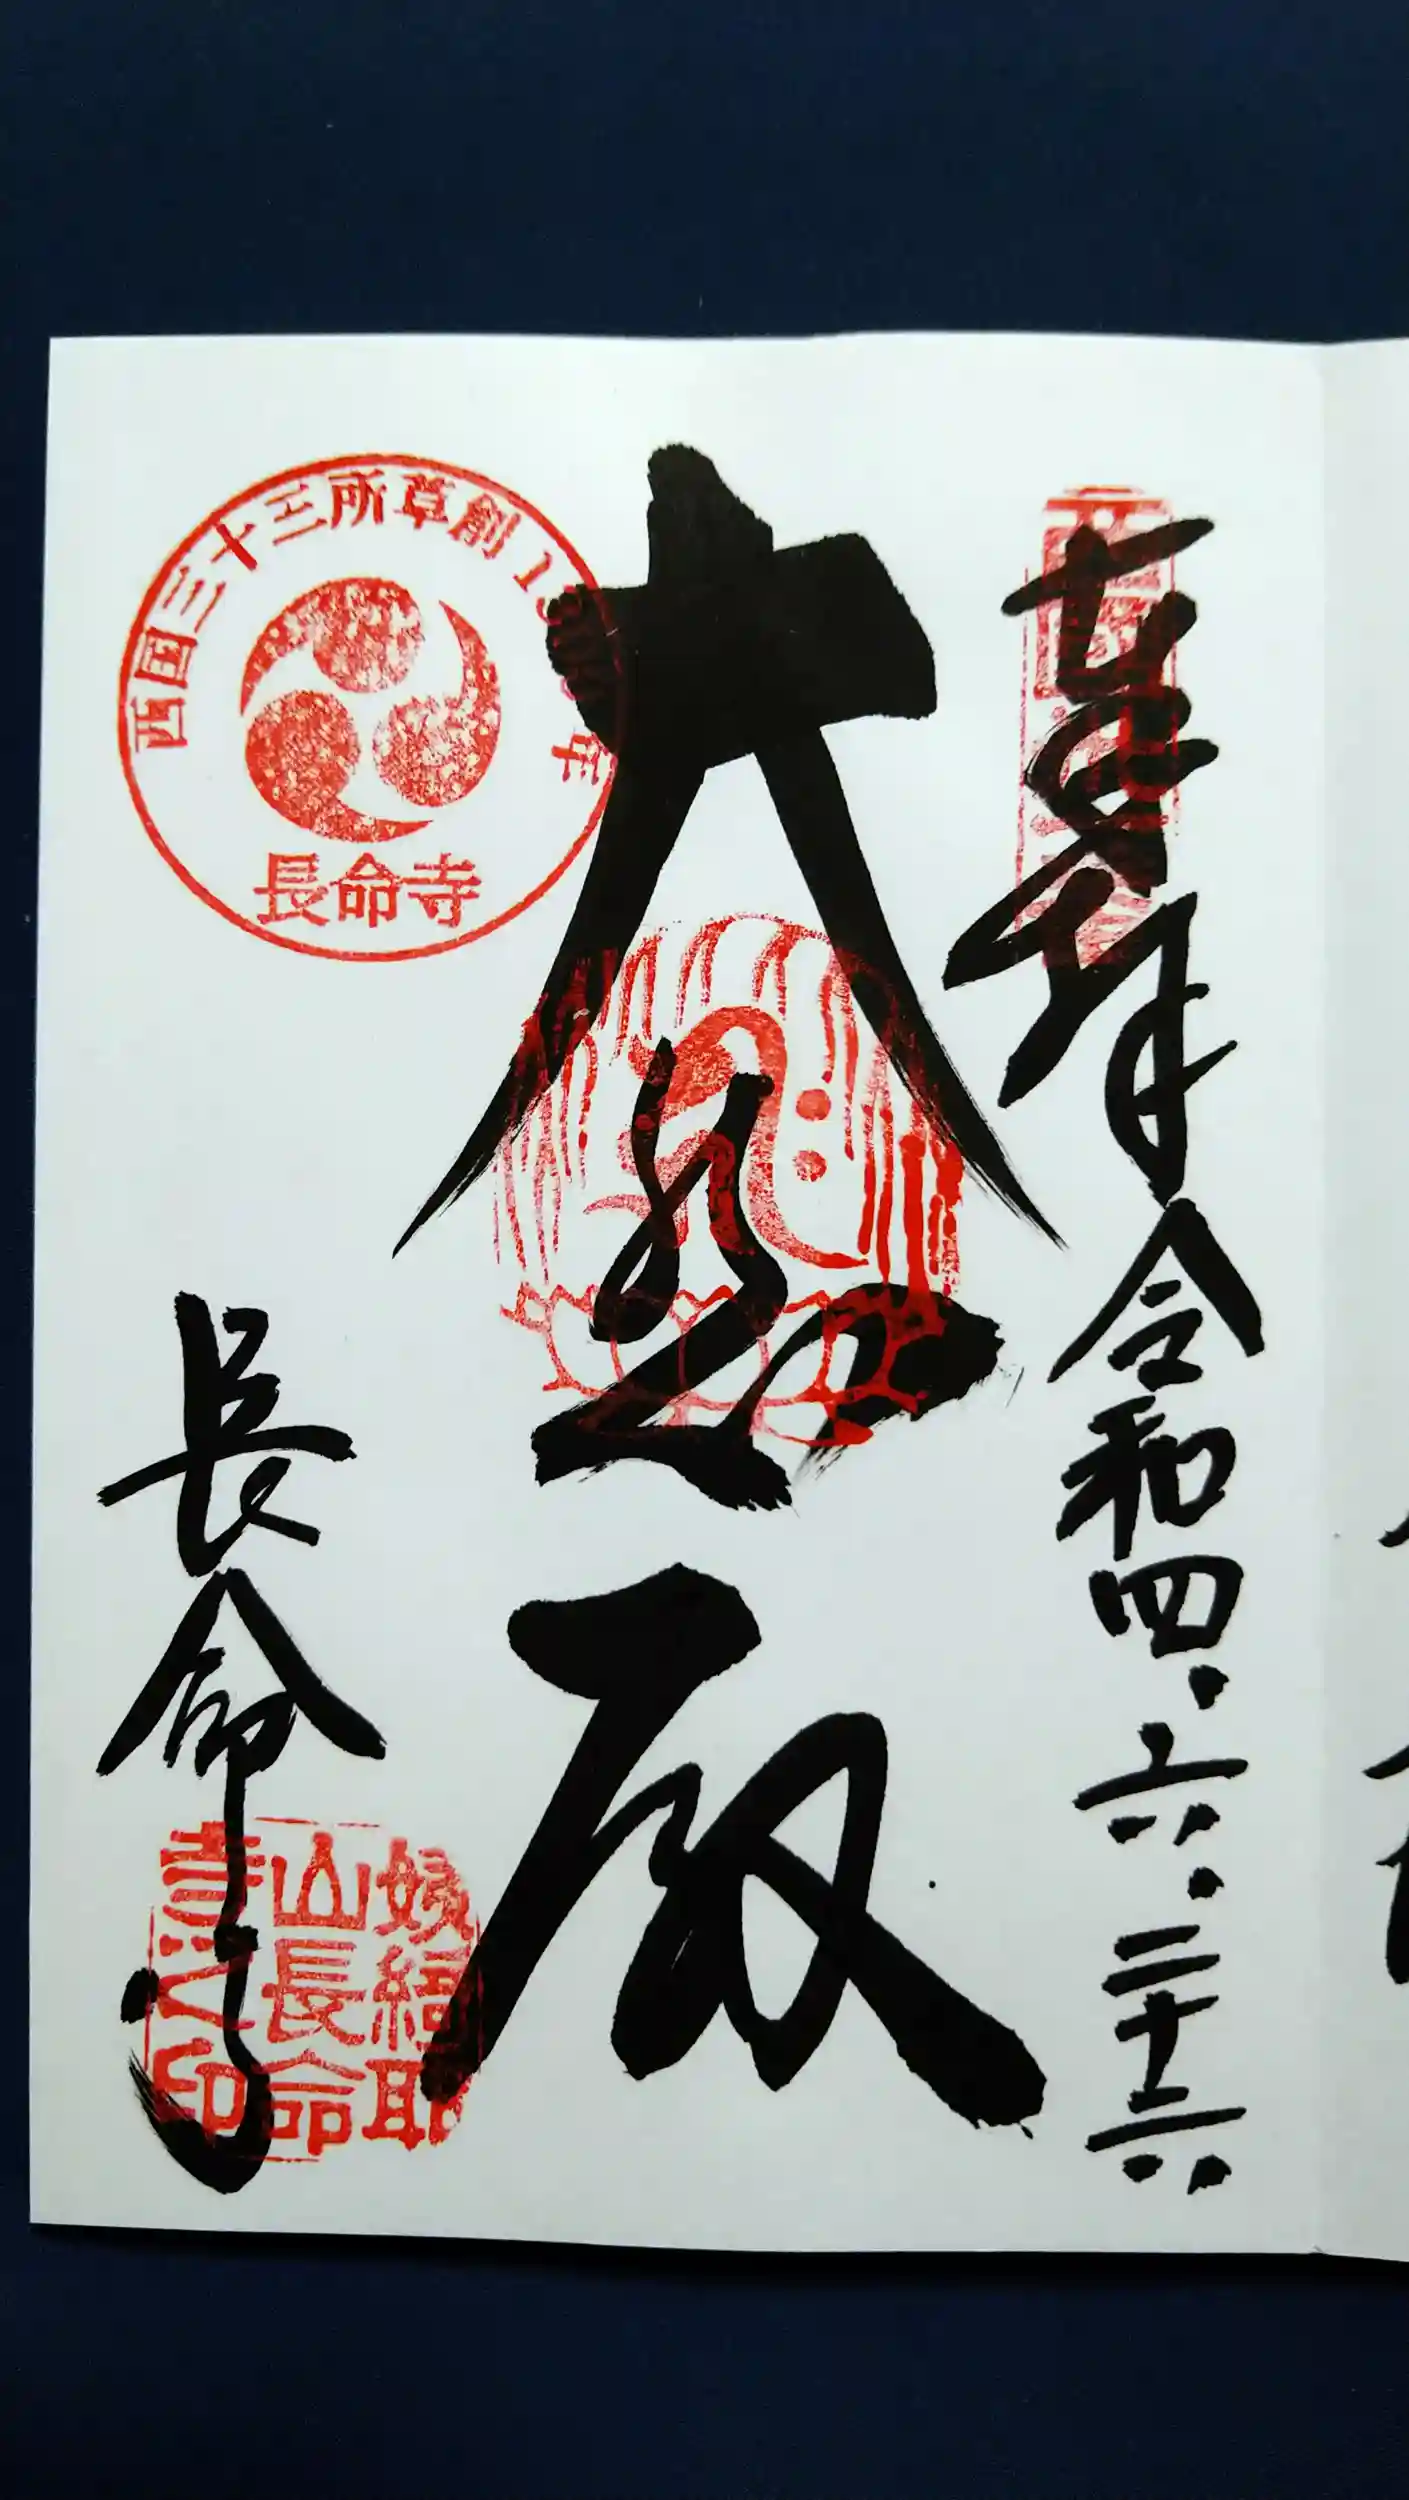 奉拝 令和四.六.二十六
大悲殿
長命寺
西国三十三所草創1300年
長命寺
姨綺耶
山長命
寺之印